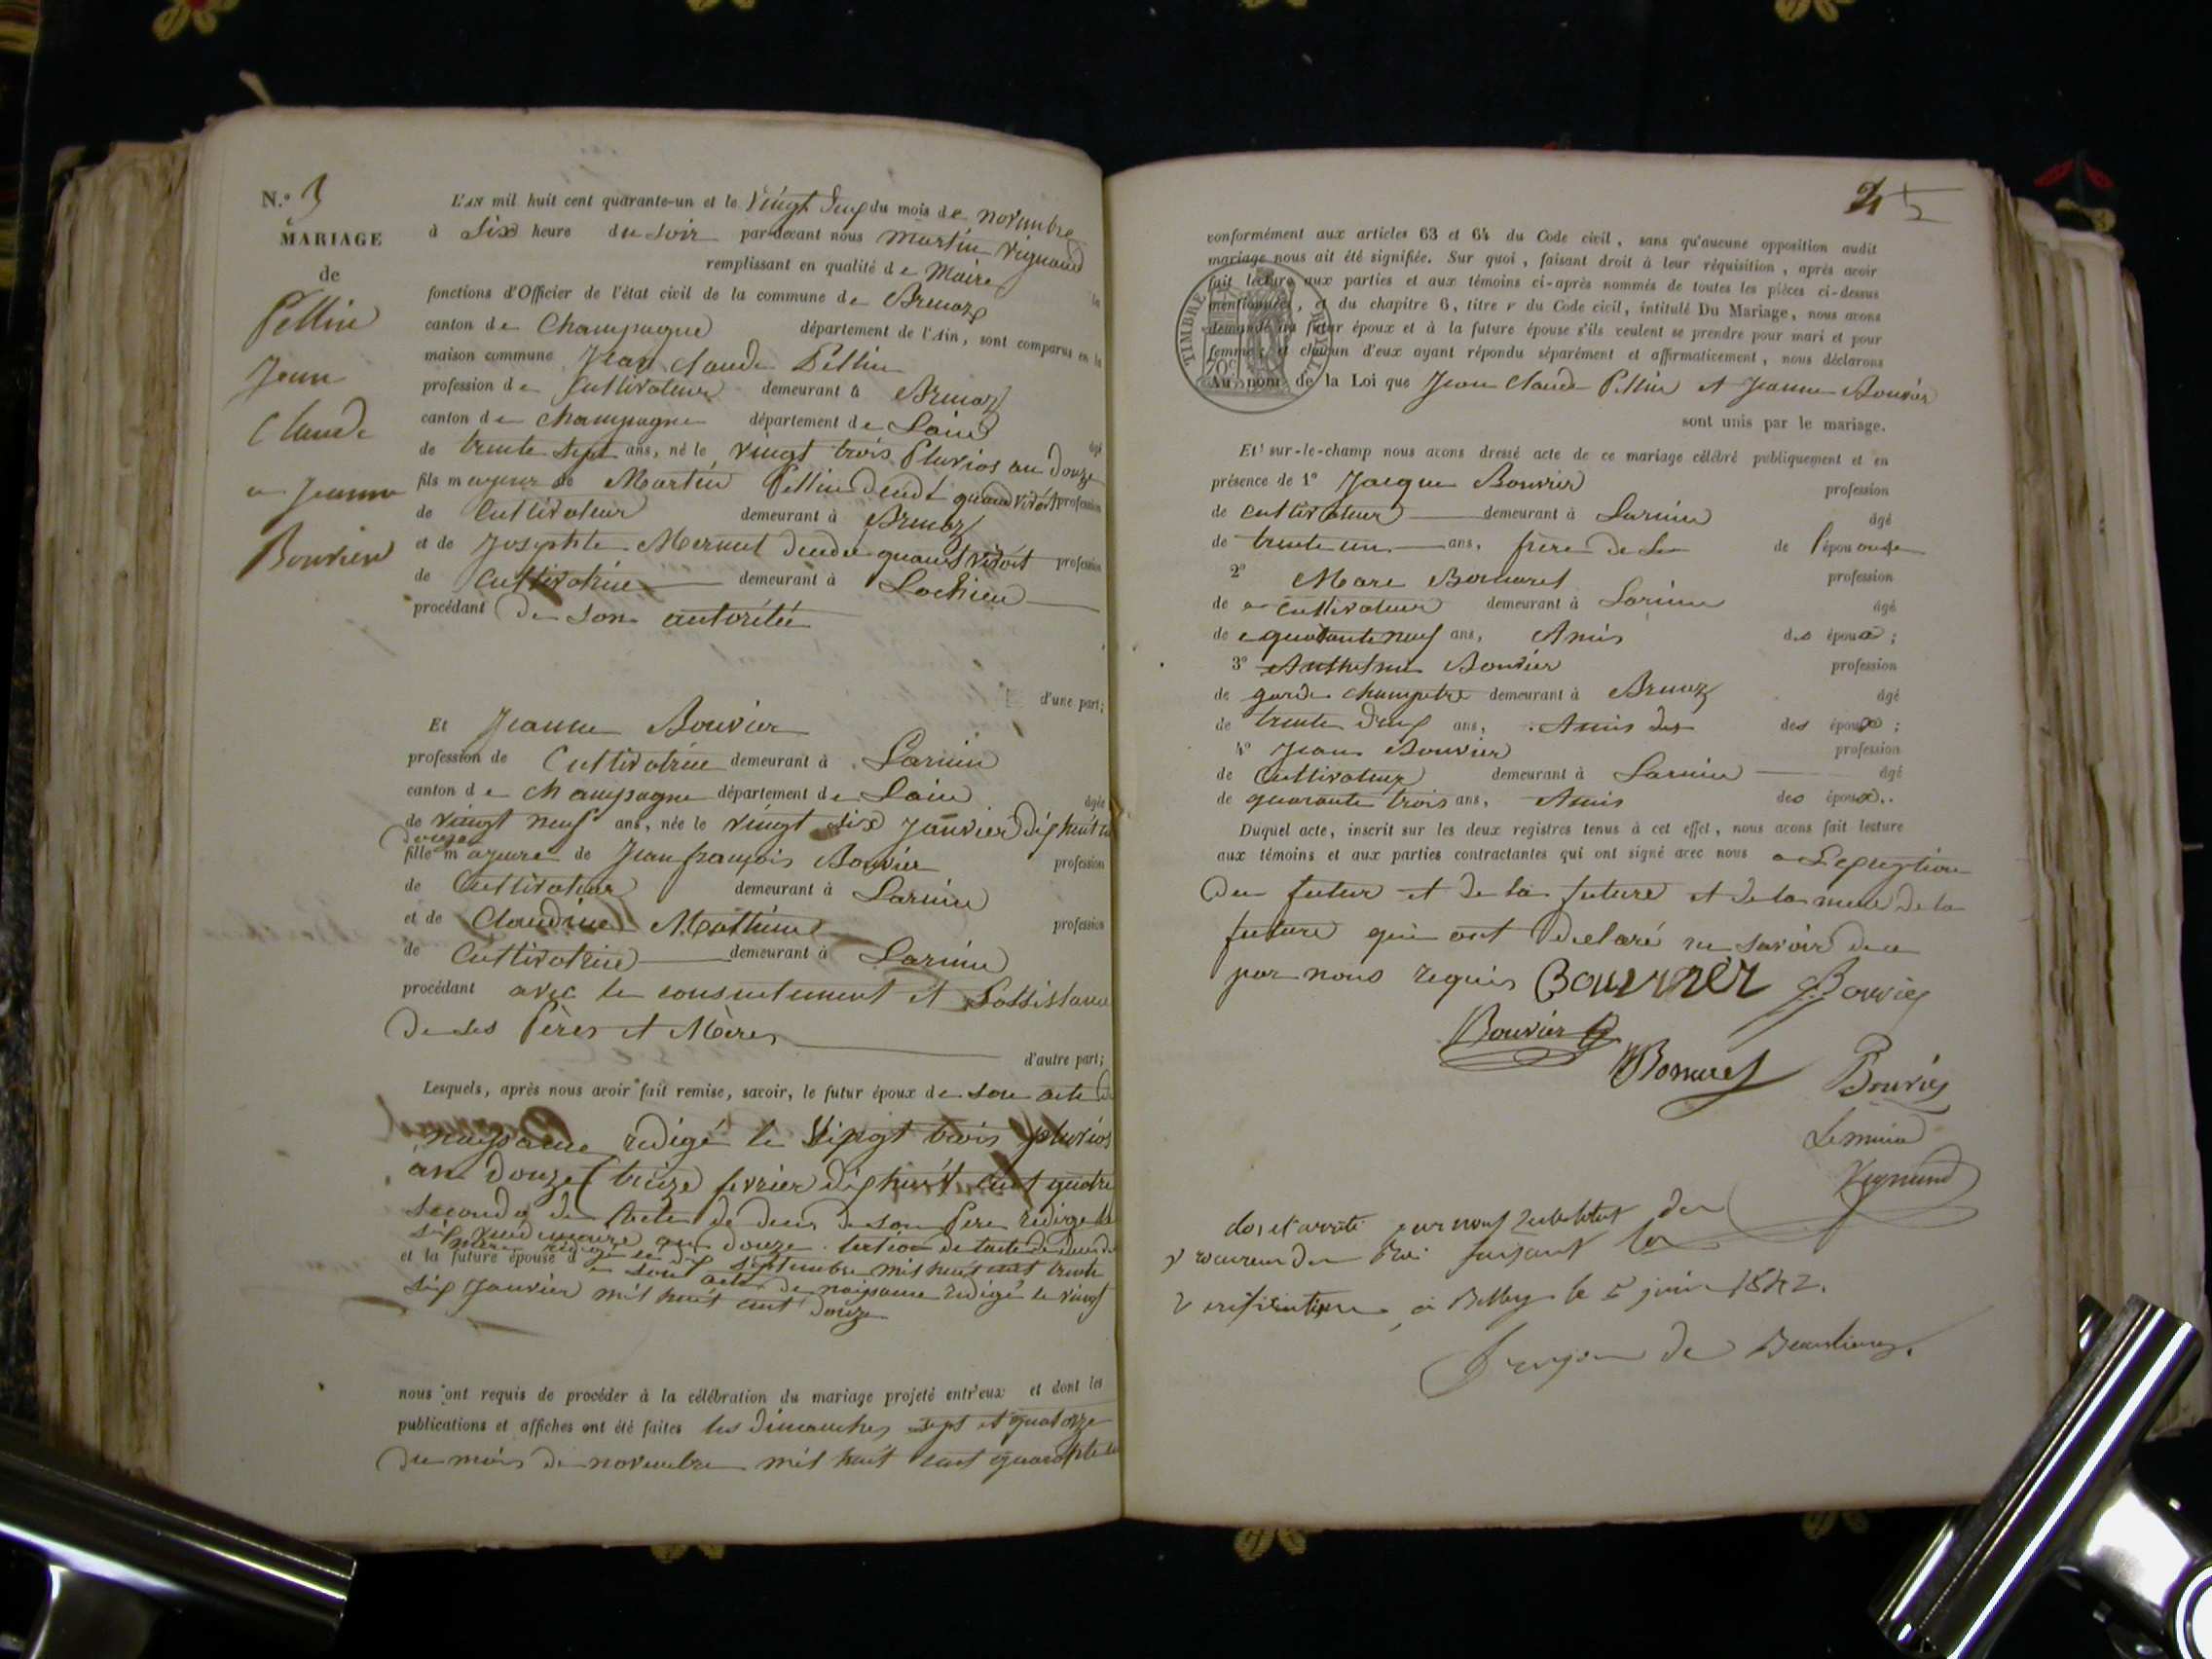 N.° 3
MARIAGE
de
Pellin
Jean
Claude
a Jeanne
Bouvier
L'AN mil huit cent quarante-un et le vingt deux du mois de novembre
à six heure du soir par-devant nous Martin Vignand
remplissant en qualité de Maire les
fonctions d'Officier de l'état civil de la commune de Brenaz
canton de Champagne département de l'Ain, sont comparus en la
maison commune Jean Claude Pellin
profession de Cultivateur demeurant à Brenaz
canton de Champagne département de Lain âgé
de trente sept ans, né le vingt trois Pluvios an douze
fils mageur de Martin Pellin quand vivoit profession
de Cultivateur demeurant à Brenaz
et de Josephte quand vivoit profession
de Cultivatrice demeurant à Lochieu
procédant de son autoritée
d'une part;
Et Jeanne Bouvier
profession de Cultivatrice demeurant à
canton de Champagne département de Lain âgée
de vingt neuf ans, née le vingt six Janvier dix huit cent
douze
fille mageure de Jean françois Bouvier profession
de Cultivateur demeurant à
et de Claudine profession
de Cultivatrice demeurant à
procédant avec le consentement et Lassistance
de ses Pères et Mères
d'autre part;
Lesquels, après nous avoir fait remise, savoir, le futur époux de son acte de
naissance redigé le Vingt trois pluvios
an douze (treize fevrier dix huit cent quatre
second de lacte de de son Pere redigé le
six an douze tertio de lacte de de
mere redigé le dix septembre mil huit cent trente
et la future épouse de son acte de naissance redigé le vingt
six Janvier mil huit cent douze
nous ont requis de procéder à la célébration du mariage projeté entr'eux et dont les
publications et affiches ont été faites les dimanches sept et quatorze
du mois de novembre mil huit cent quarante un
25
conformément aux articles 63 et 64 du Code civil, sans qu'aucune opposition audit
mariage nous ait été signifiée. Sur quoi, faisant droit à leur réquisition, après avoir
fait lecture aux parties et aux témoins ci-après nommés de toutes les pièces ci-dessus
mentionnées, et du chapitre 6, titre v du Code civil, intitulé Du Mariage, nous avons
demandé au futur époux et à la future épouse s'ils veulent se prendre pour mari et pour
femme; et chacun d'eux ayant répondu séparément et affirmativement, nous déclarons
TIMBRE ROYAL
70c
Au nom de la Loi que Jean Claude Pellin et Jeanne Bouvier
sont unis par le mariage.
Et sur-le-champ nous avons dressé acte de ce mariage célébré publiquement et en
présence de 1° Jacque Bouvier profession
de cultivateur demeurant à âgé
de trente un ans, frère de La de l'épouse
2° Marc Bonnaret profession
de cultivateur demeurant à âgé
de quarante neuf ans, Amis des époux;
3° Anthelme Bouvier profession
de garde champetre demeurant à Brenaz âgé
de trente deux ans, Amis des des époux;
4° Jean Bouvier profession
de Cultivateur demeurant à âgé
de quarante trois ans, Amis des époux.
Duquel acte, inscrit sur les deux registres tenus à cet effet, nous avons fait lecture
aux témoins et aux parties contractantes qui ont signé avec nous a Lexception
du futur et de la future et de la mere de la
future qui ont declaré ne savoir de ce
par nous requis Bouvier Bouvier
Bouvier
Bonnaret Bouvier
Le maire
Vignand
clos et arreté par nous substitut du
procureur du Roi faisant la
verification, à Belley le 5 juin 1842.
de Beaulieu